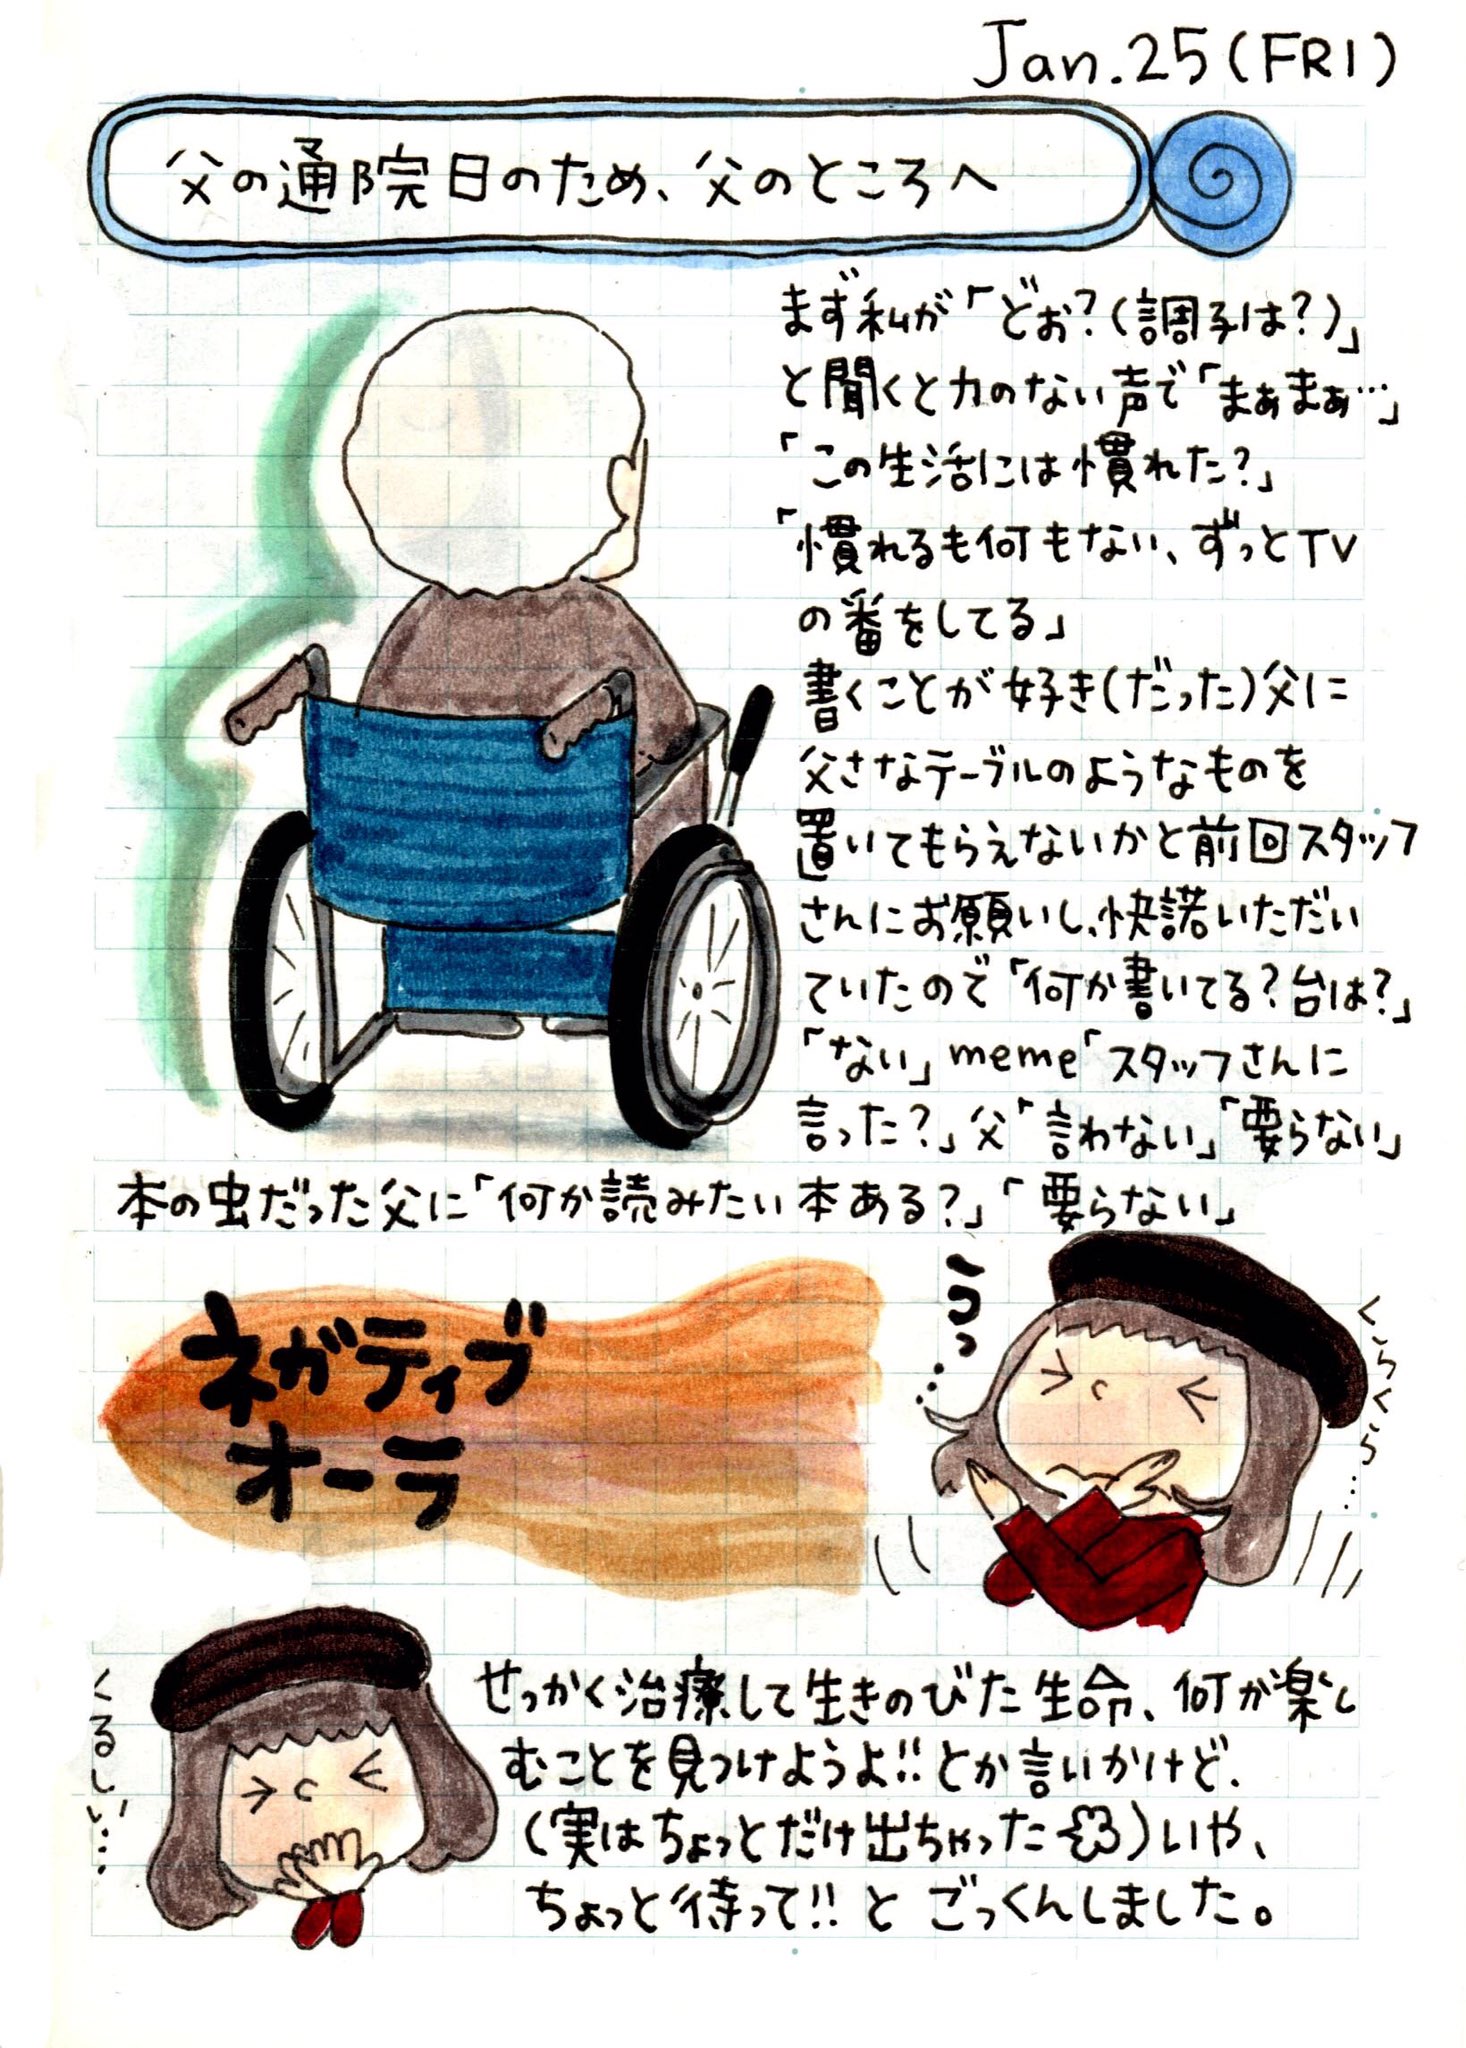 Jan.25(FRI)
父の通院日のため、父のところへ
まず私が「どぉ?(調子は?)」
と聞くと力のない声で「まぁまぁ…」
「この生活には慣れた?」
「慣れるも何もない、ずっとTV
の番をしてる」
書くことが好き(だった)父に
父さなテーブルのようなものを
置いてもらえないかと前回スタッフ
さんにお願いし、快諾いただい
ていたので「何か書いてる?台は?」
「ない」meme「スタッフさんに
言った?」父「言わない」「要らない」
本の虫だった父に「何か読みたい本ある?」「要らない」
ネガティブ
オーラ
うっ…
くらくら…
くるしい…
せっかく治療して生きのびた生命、何か楽し
むことを見つけようよ!!とか言いかけど、
(実はちょっとだけ出ちゃった)いや、
ちょっと待って!!と ごっくんしました。